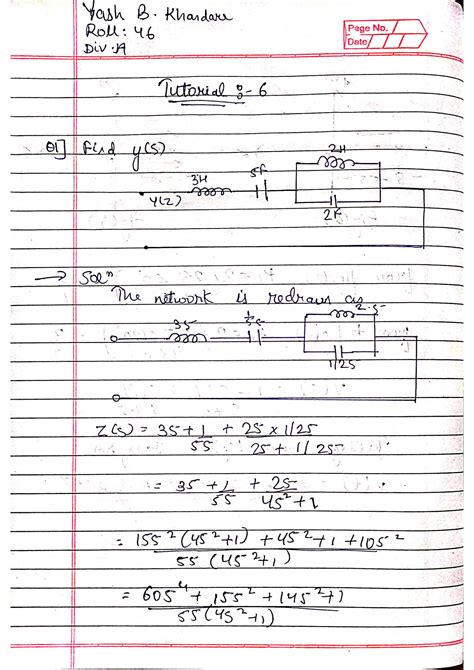 Yash B. Khandare
Roll: 46
Div: A
Page No.
Date
Tutorial :- 6
Q1] Find y(s)
2H
3H
5F
Y(Z)
2F
→ Solⁿ
The network is redrawn as
2.s
3s
1/5s
1/2s
Z(s) = 3s + 1/5s + 2s × 1/2s / 2s + 1/2s
= 3s + 1/5s + 2s / 4s² + 1
= 15s² (4s² + 1) + 4s² + 1 + 10s² / 5s (4s² + 1)
= 60s⁴ + 15s² + 14s² + 1 / 5s (4s² + 1)